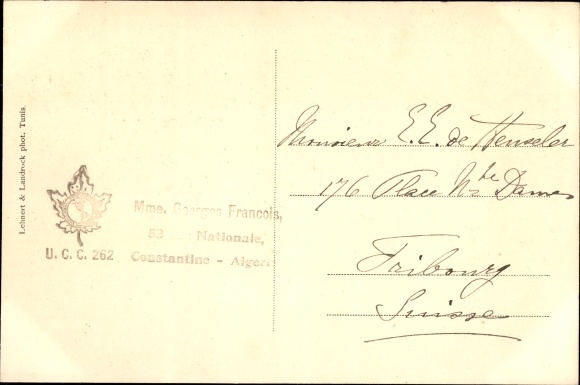 Lehnert & Landrock phot. Tunis.
U. C. C. 262
Mme. Georges François,
52 Nationale,
Constantine - Algeri
Monsieur E. E. de Henseler
176 Place Ns de Dames
Fribourg
Suisse